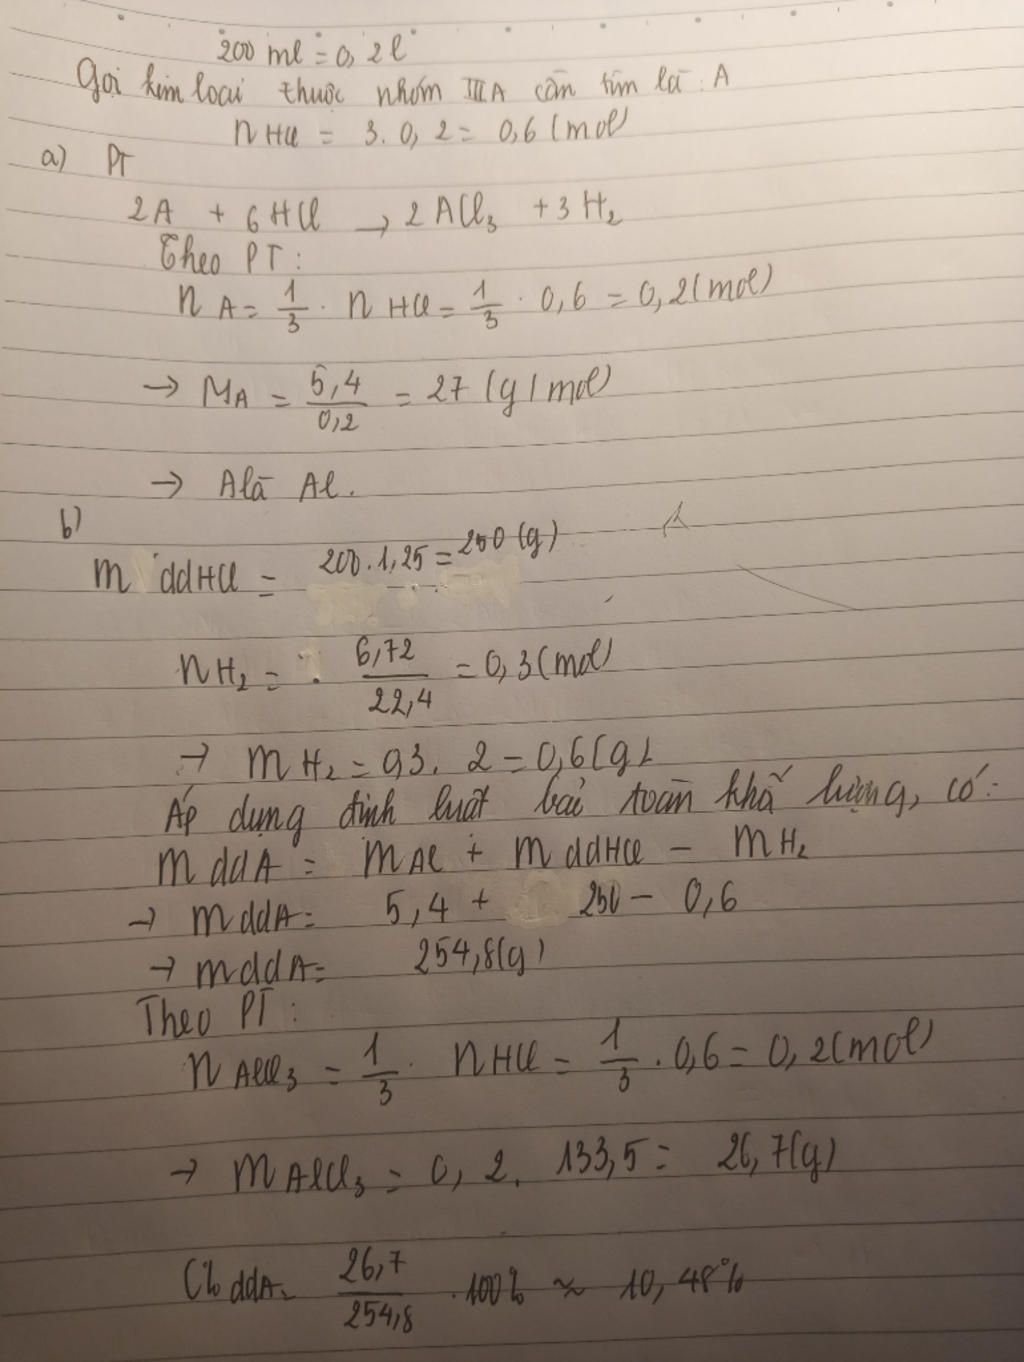 200 ml = 0,2l
Gọi kim loại thuộc nhóm IIIA cần tìm là : A
nHCl = 3. 0,2 = 0,6 (mol)
a) PT
2A + 6HCl → 2ACl₃ + 3H₂
Theo PT :
nA = 1/3 . nHCl = 1/3 . 0,6 = 0,2(mol)
→ MA = 5,4/0,2 = 27 (g/mol)
→ A là Al.
b)
m ddHCl = 200.1,25 = 250 (g)
nH₂ = 6,72/22,4 = 0,3(mol)
→ mH₂ = 0,3. 2 = 0,6(g)
Áp dụng định luật bảo toàn khố lượng, có :
mddA = mAl + mddHCl - mH₂
→ mddA = 5,4 + 250 - 0,6
→ mddA = 254,8(g)
Theo PT :
nAlCl₃ = 1/3 . nHCl = 1/3 . 0,6 = 0,2(mol)
→ mAlCl₃ = 0,2. 133,5 = 26,7(g)
C% ddA = 26,7/254,8 .100% ≈ 10,48%